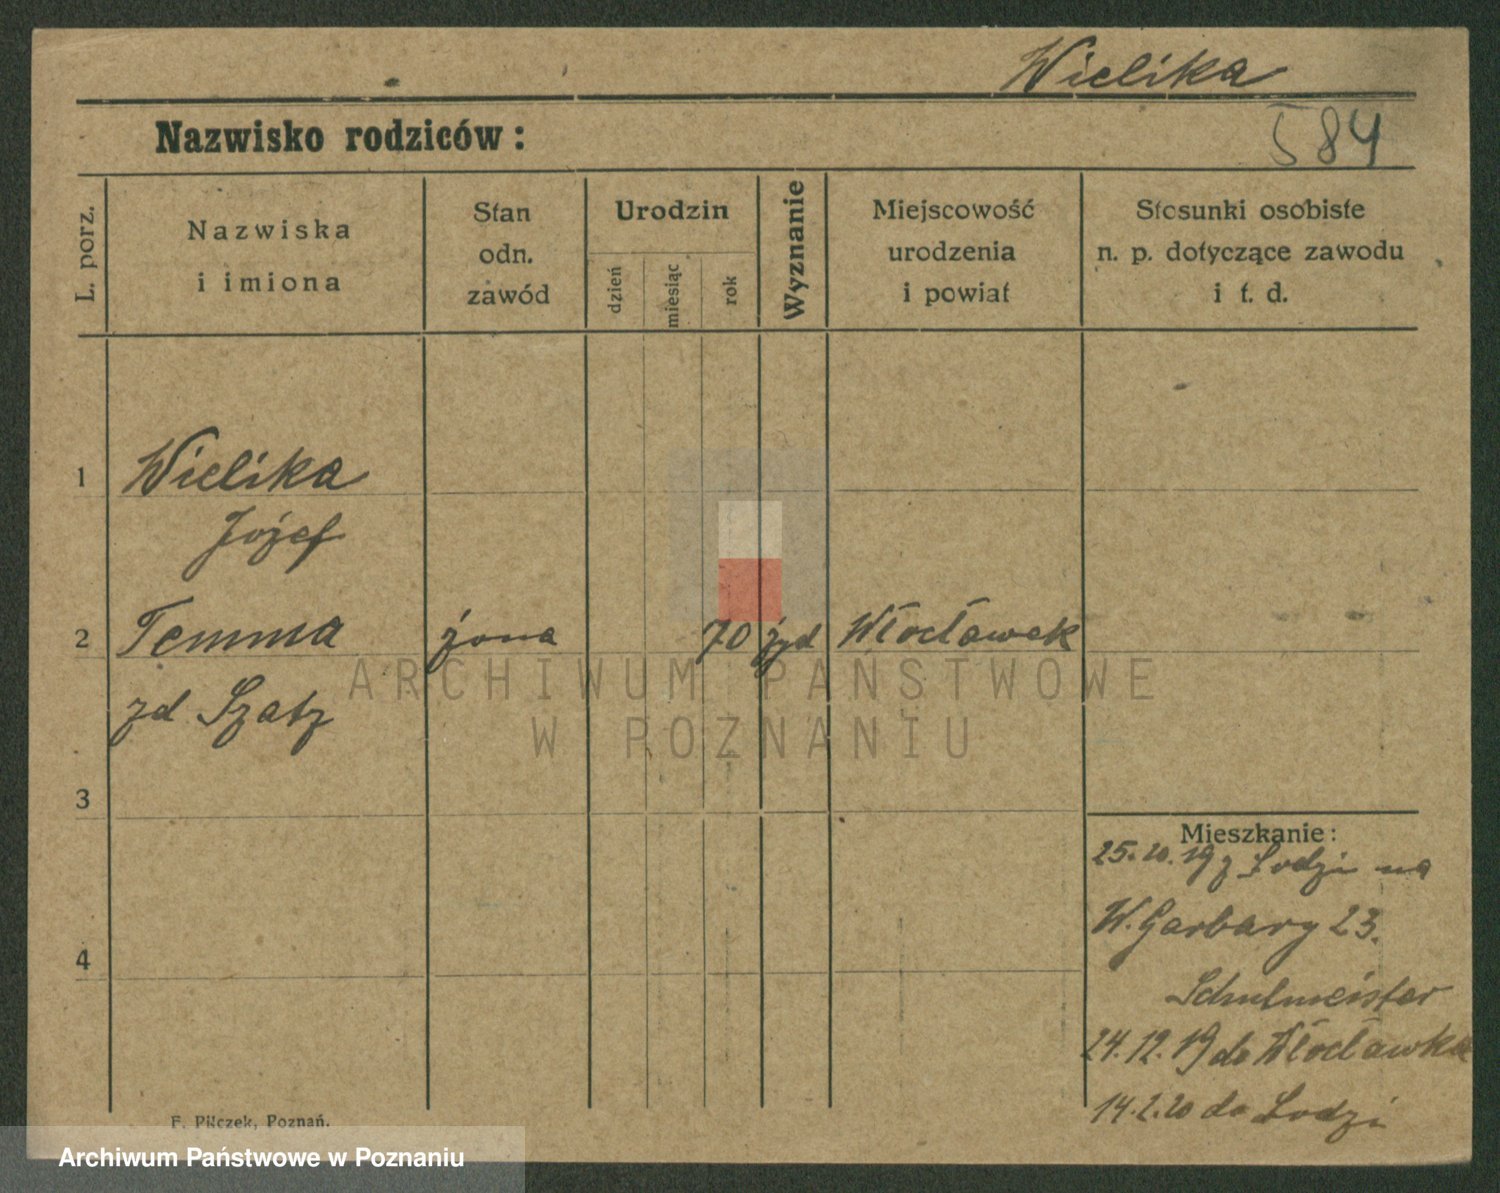 Wielika
Nazwisko rodziców:
584
L. porz.
Nazwiska
i imiona
Stan
odn.
zawód
Urodzin
dzień
miesiąc
rok
Wyznanie
Miejscowość
urodzenia
i powiat
Stosunki osobiste
n. p. dotyczące zawodu
i t. d.
1 Wielika
Józef
2 Temma żona 70 żyd Włocławek
zd Szatz
3
4
Mieszkanie:
25.10.19 z Łodzi na
W. Garbary 23.
Schulmeister
24.12.19 do Włocławka
14.2.20 do Łodzi
F. Pilczek, Poznań.
ARCHIWUM PAŃSTWOWE
W POZNANIU
Archiwum Państwowe w Poznaniu